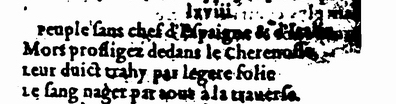 lxviii.
Peuple sans chef d'Espaigne & d'Italie
Mors profligez dedans le Cheronesse
Leur duict trahy par legere folie
Le sang nager par tout à la trauerse.